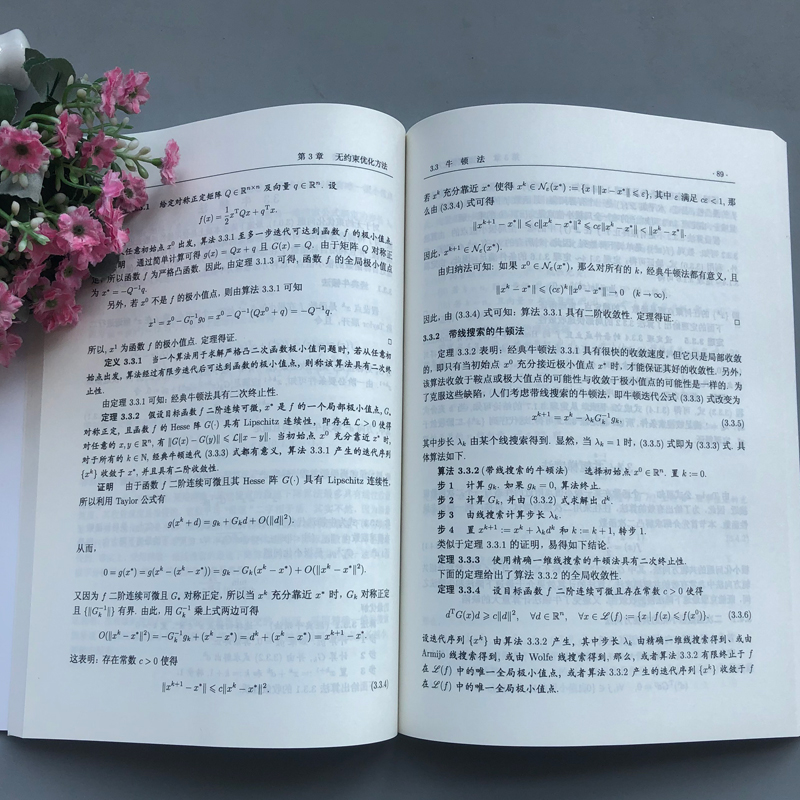 第 3 章 无约束优化方法
3.1 给定对称正定矩阵 Q ∈ ℝⁿˣⁿ 及向量 q ∈ ℝⁿ. 设
f(x) = 1/2 xᵀQx + qᵀx.
任意初始点 x⁰ 出发, 算法 3.3.1 至多一步迭代可达到函数 f 的极小值点.
明 通过简单计算可得 g(x) = Qx + q 且 G(x) = Q. 由于矩阵 Q 对称正
所以函数 f 为严格凸函数. 因此, 由定理 3.1.3 可得, 函数 f 的全局极小值点
为 x* = −Q⁻¹q.
另外, 若 x⁰ 不是 f 的极小值点, 则由算法 3.3.1 可知
x¹ = x⁰ − G₀⁻¹g₀ = x⁰ − Q⁻¹(Qx⁰ + q) = −Q⁻¹q.
所以, x¹ 为函数 f 的极小值点. 定理得证. □
定义 3.3.1 当一个算法用于求解严格凸二次函数极小值问题时, 若从任意初
始点出发, 算法经过有限步迭代后可达到函数的极小值点, 则称该算法具有二次终
止性.
由定理 3.3.1 可知: 经典牛顿法具有二次终止性.
定理 3.3.2 假设目标函数 f 二阶连续可微, x* 是 f 的一个局部极小值点, G*
对称正定, 且函数 f 的 Hesse 阵 G(·) 具有 Lipschitz 连续性, 即存在 ℒ > 0 使得
对任意的 x, y ∈ ℝⁿ, 有 ‖G(x) − G(y)‖ ⩽ ℒ‖x − y‖. 当初始点 x⁰ 充分靠近 x* 时,
对于所有的 k ∈ ℕ, 经典牛顿迭代 (3.3.3) 式都有意义, 算法 3.3.1 产生的迭代序列
{xᵏ} 收敛于 x*, 并且具有二阶收敛性.
证明 由于函数 f 二阶连续可微且其 Hesse 阵 G(·) 具有 Lipschitz 连续性,
所以利用 Taylor 公式有
g(xᵏ + d) = gₖ + Gₖd + O(‖d‖²).
从而,
0 = g(x*) = g(xᵏ − (xᵏ − x*)) = gₖ − Gₖ(xᵏ − x*) + O(‖xᵏ − x*‖²).
又因为 f 二阶连续可微且 G* 对称正定, 所以当 xᵏ 充分靠近 x* 时, Gₖ 对称正定
且 {‖Gₖ⁻¹‖} 有界. 由此, 用 Gₖ⁻¹ 乘上式两边可得
O(‖xᵏ − x*‖²) = −Gₖ⁻¹gₖ + (xᵏ − x*) = dᵏ + (xᵏ − x*) = xᵏ⁺¹ − x*.
这表明: 存在常数 c > 0 使得
‖xᵏ⁺¹ − x*‖ ⩽ c‖xᵏ − x*‖², (3.3.4)
3.3 牛 顿 法 · 89 ·
若 xᵏ 充分靠近 x* 使得 xᵏ ∈ 𝒩ε(x*) := {x | ‖x − x*‖ ⩽ ε}, 其中 ε 满足 cε < 1, 那
么由 (3.3.4) 式可得
‖xᵏ⁺¹ − x*‖ ⩽ c‖xᵏ − x*‖² ⩽ cε‖xᵏ − x*‖ ⩽ ‖xᵏ − x*‖.
因此, xᵏ⁺¹ ∈ 𝒩ε(x*).
由归纳法可知: 如果 x⁰ ∈ 𝒩ε(x*), 那么对所有的 k, 经典牛顿法都有意义, 且
‖xᵏ − x*‖ ⩽ (cε)ᵏ‖x⁰ − x*‖ → 0 (k → ∞).
因此, 由 (3.3.4) 式可知: 算法 3.3.1 具有二阶收敛性. 定理得证. □
3.3.2 带线搜索的牛顿法
定理 3.3.2 表明: 经典牛顿法 3.3.1 具有很快的收敛速度, 但它只是局部收敛
的, 即只有当初始点 x⁰ 充分接近极小值点 x* 时, 才能保证其好的收敛性. 另外,
该算法收敛于鞍点或极大值点的可能性与收敛于极小值点的可能性是一样的. 为
了克服这些缺陷, 人们考虑带线搜索的牛顿法, 即牛顿迭代公式 (3.3.3) 式改变为
xᵏ⁺¹ = xᵏ − λₖGₖ⁻¹gₖ, (3.3.5)
其中步长 λₖ 由某个线搜索得到. 显然, 当 λₖ = 1 时, (3.3.5) 式即为 (3.3.3) 式. 具
体算法如下.
算法 3.3.2 (带线搜索的牛顿法) 选择初始点 x⁰ ∈ ℝⁿ. 置 k := 0.
步 1 计算 gₖ. 如果 gₖ = 0, 算法终止.
步 2 计算 Gₖ, 并由 (3.3.2) 式求解出 dᵏ.
步 3 由线搜索计算步长 λₖ.
步 4 置 xᵏ⁺¹ := xᵏ + λₖdᵏ 和 k := k + 1, 转步 1.
类似于定理 3.3.1 的证明, 易得如下结论.
定理 3.3.3 使用精确一维线搜索的牛顿法具有二次终止性.
下面的定理给出了算法 3.3.2 的全局收敛性.
定理 3.3.4 设目标函数 f 二阶连续可微且存在常数 c > 0 使得
dᵀG(x)d ⩾ c‖d‖², ∀d ∈ ℝⁿ, ∀x ∈ ℒ(f) := {x | f(x) ⩽ f(x⁰)}. (3.3.6)
设迭代序列 {xᵏ} 由算法 3.3.2 产生, 其中步长 λₖ 由精确一维线搜索得到、或由
Armijo 线搜索得到, 或由 Wolfe 线搜索得到, 那么, 或者算法 3.3.2 有限终止于 f
在 ℒ(f) 中的唯一全局极小值点, 或者算法 3.3.2 产生的迭代序列 {xᵏ} 收敛于 f
在 ℒ(f) 中的唯一全局极小值点.